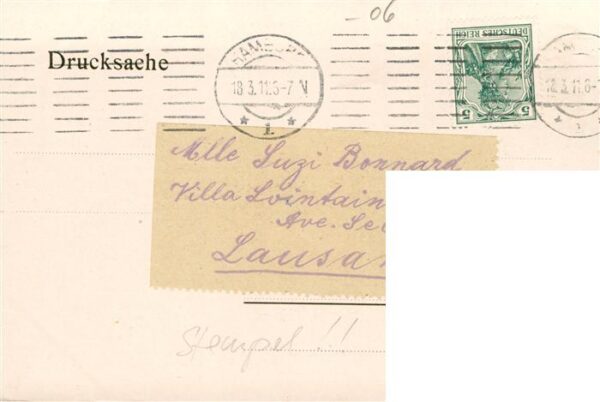 -06
Drucksache
HAMBUR
18.3.11.6-7 V
* 1. *
DEUTSCHES REICH
5 5
18.3.11.6-7
Mlle Suzi Bonnard
Villa Lointain
Ave. Se
Lausan
Stempel!!